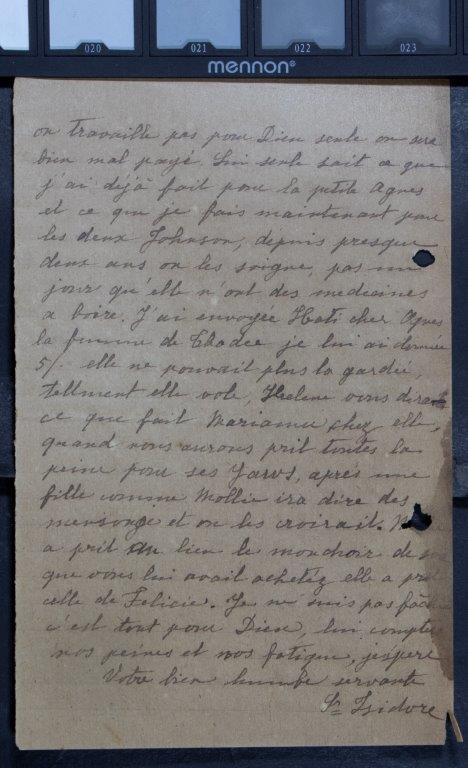 020 021 022 023
mennon®
on travaille pas pour Dieu seule on sera
bien mal payé. Lui seule sait ce que
j'ai déjà fait pour la petite Agnes
et ce que je fais maintenant pour
les deux Johnson, depuis presque
deux ans on les soigne, pas un
jour qu'elle n'ont des medecines
a boire. J'ai envoyée Hati cher Agnes
la femme de Thadée je lui ai donnée
5/- elle ne pouvait plus la gardée,
tellment elle vole, Helene vous dira
ce que fait Mariamu chez elle,
quand nous aurons prit toutes la
peine pour ses Yaws, après une
fille comme Mollie ira dire des
mensonge et on les croirait.
a prit au lieu le mouchoir de
que vous lui avait achetéz elle a pr
celle de Felicie. Je ne suis pas fâch
c'est tout pour Dieu, lui compter
nos peines et nos fatigue, j'espère
Votre bien humbe servante
Sr Isidore